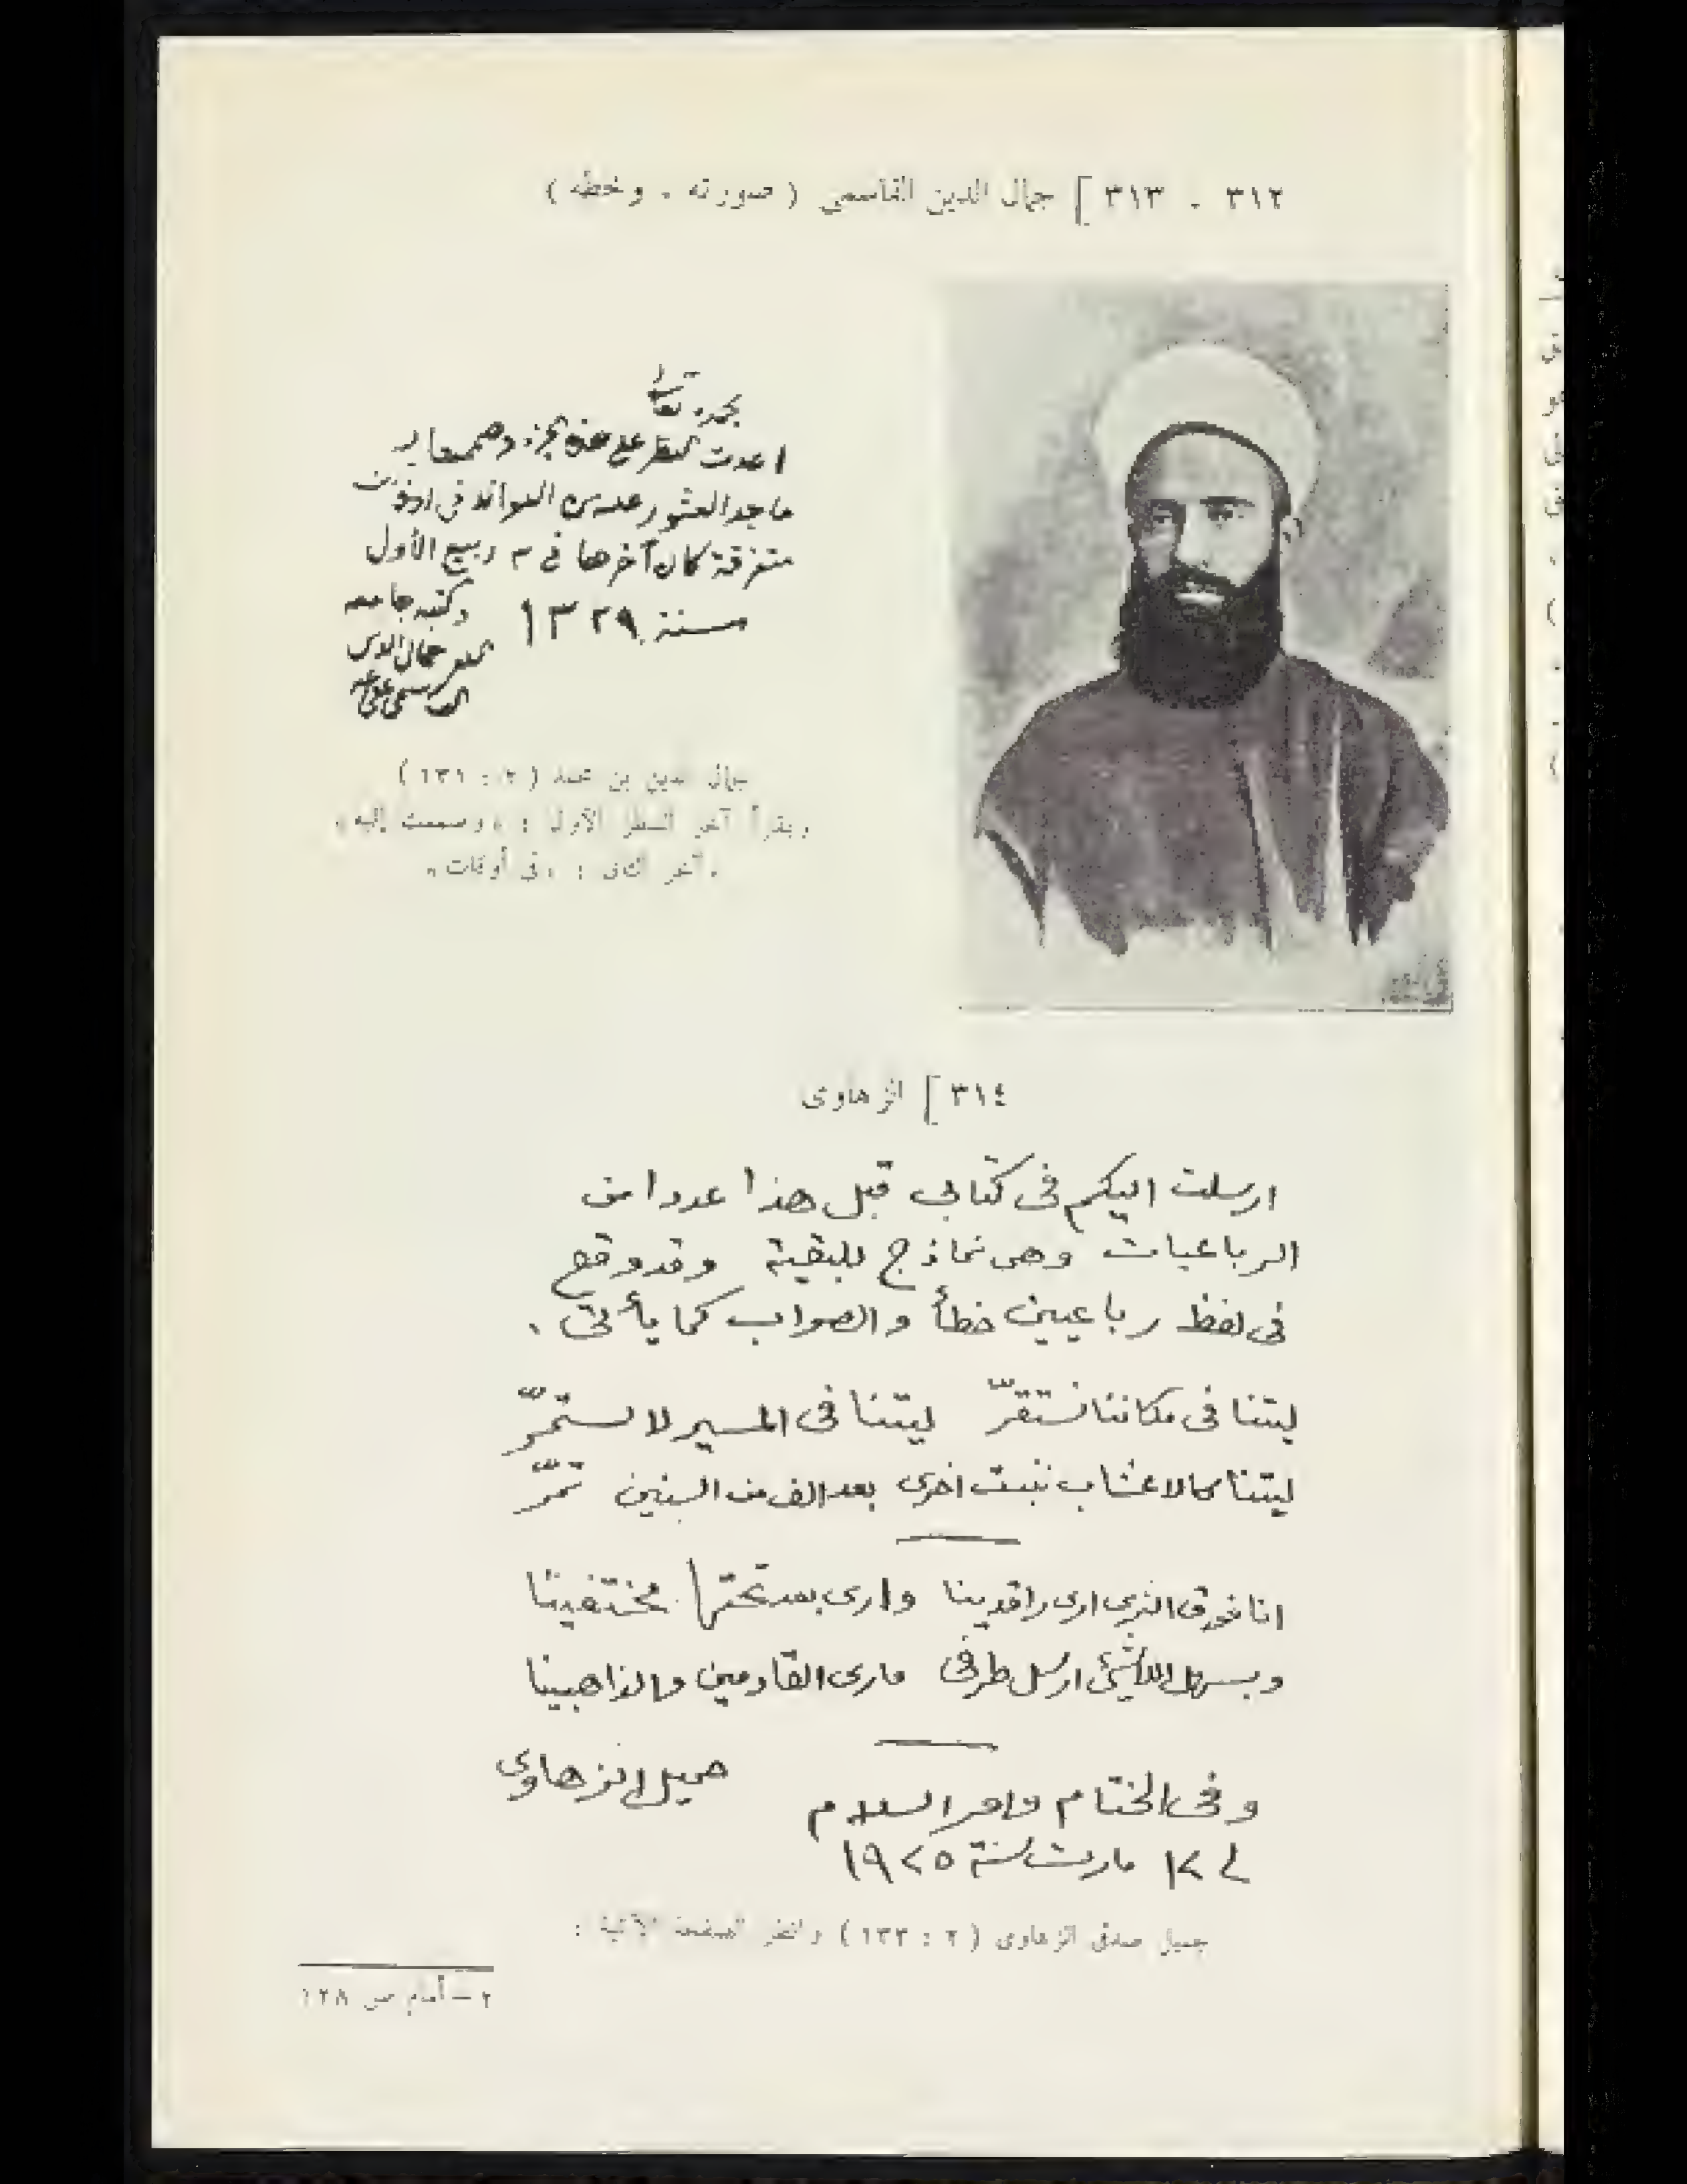 ٣١٢ - ٣١٣ ] جمال الدين القاسمي ( صورته . وخطه )
بحمده تعالى
اعدت النظر على هذه
متفرقة كان آخرها في ٣ ربيع الأول
سنة ١٣٢٩
وكتبه جامعه
جمال الدين
القاسمي عفي عنه
جمال الدين بن محمد ( ٢ : ١٣١ )
ويقرأ آخر السطر الأول : « وضممت إليه »
وآخر الثاني : « في أوقات »
٣١٤ ] الزهاوى
ارسلت اليكم فى كتابي قبل هذا عددا من
الرباعيات وهى نماذج للبقية وقد وقع
فى لفظ رباعيين خطأ والصواب كما يأتى .
ليتنا فى مكاننا نستقرّ ليتنا فى المسير لا نستمرّ
ليتنا كالاعشاب ننبت اخرى بعد الف من السنين تمرّ
انا فوق الثرى ارى راقدينا وارى بعد تحتها مختفينا
ارسل طرفى فارى القادمين والذاهبينا
وفى الختام وافر السلام
جميل الزهاوى
فى ١٢ مارت سنة ١٩٢٥
جميل صدقي الزهاوى ( ٢ : ١٣٣ ) وانظر الصفحة الآتية :
٢ – أمام ص ١٢٨